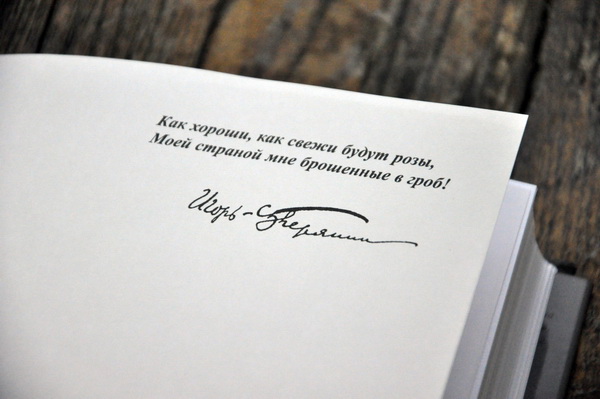 Как хороши, как свежи будут розы,
Моей страной мне брошенные в гроб!
Игорь-Северянин